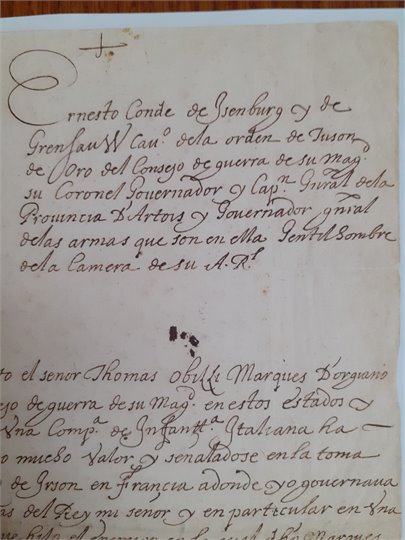 Ernesto Conde de Isenburg y de
Grensau W Cauº. dela orden de Tuson
de Oro del Consejo de guerra de su Magd.
su Coronel Gouernador y Capn. Gñral dela
Prouincia D'Artois y Gouernador gñral
delas armas que son en ella Gentilhombre
dela Camera de su A. Rl.
to el señor Thomas Obizzi Marques D'orgiano
ejo de guerra de su Magd. en estos estados y
Vna Compª. de Infantt.ª Italiana ha
o mucho Valor y señaladose en la toma
o de Irson en Francia adonde yo gouernaua
as del Rey mi señor y en particular en Vna
que hizo el enemigo en la qual dho Marques